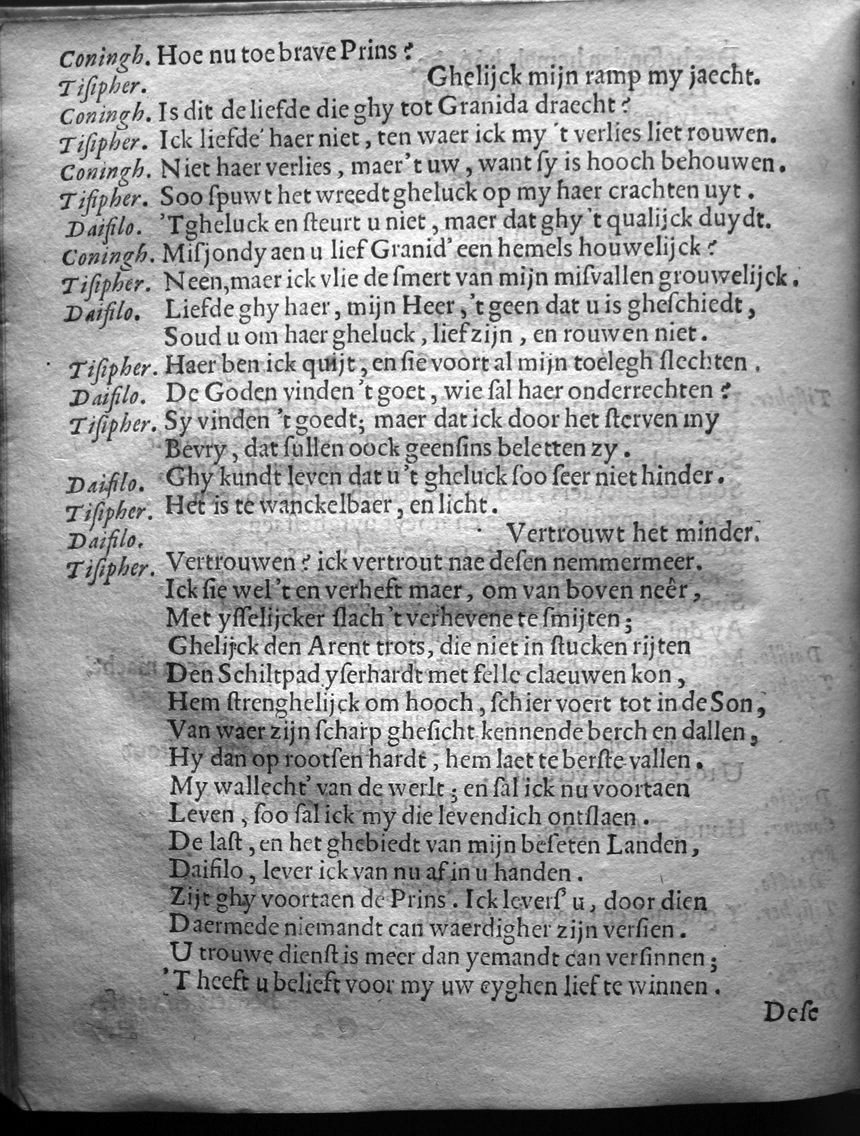 Coningh. Hoe nu toe brave Prins?
Tisipher. Ghelijck mijn ramp my jaecht.
Coningh. Is dit de liefde die ghy tot Granida draecht?
Tisipher. Ick liefde' haer niet, ten waer ick my 't verlies liet rouwen.
Coningh. Niet haer verlies, maer 't uw, want sy is hooch behouwen.
Tisipher. Soo spuwt het wreedt gheluck op my haer crachten uyt.
Daifilo. 'Tgheluck en steurt u niet, maer dat ghy 't qualijck duydt.
Coningh. Misjondy aen u lief Granid' een hemels houwelijck?
Tisipher. Neen, maer ick vlie de smert van mijn misvallen grouwelijck.
Daifilo. Liefde ghy haer, mijn Heer, 't geen dat u is gheschiedt,
Soud u om haer gheluck, lief zijn, en rouwen niet.
Tisipher. Haer ben ick quijt, en sie voort al mijn toelegh slechten.
Daifilo. De Goden vinden 't goet, wie sal haer onderrechten?
Tisipher. Sy vinden 't goedt; maer dat ick door het sterven my
Bevry, dat sullen oock geensins beletten zy.
Daifilo. Ghy kundt leven dat u 't gheluck soo seer niet hinder.
Tisipher. Het is te wanckelbaer, en licht.
Daifilo. Vertrouwt het minder.
Tisipher. Vertrouwen? ick vertrout nae desen nemmermeer.
Ick sie wel 't en verheft maer, om van boven neêr,
Met ysselijcker slach 't verhevene te smijten;
Ghelijck den Arent trots, die niet in stucken rijten
Den Schiltpad yserhardt met felle claeuwen kon,
Hem strenghelijck om hooch, schier voert tot in de Son,
Van waer zijn scharp ghesicht kennende berch en dallen,
Hy dan op rootsen hardt, hem laet te berste vallen.
My wallecht' van de werlt; en sal ick nu voortaen
Leven, soo sal ick my die levendich ontslaen.
De last, en het ghebiedt van mijn beseten Landen,
Daifilo, lever ick van nu af in u handen.
Zijt ghy voortaen de Prins. Ick levers u, door dien
Daermede niemandt can waerdigher zijn versien.
U trouwe dienst is meer dan yemandt can versinnen;
'T heeft u belieft voor my uw eyghen lief te winnen.
Dese